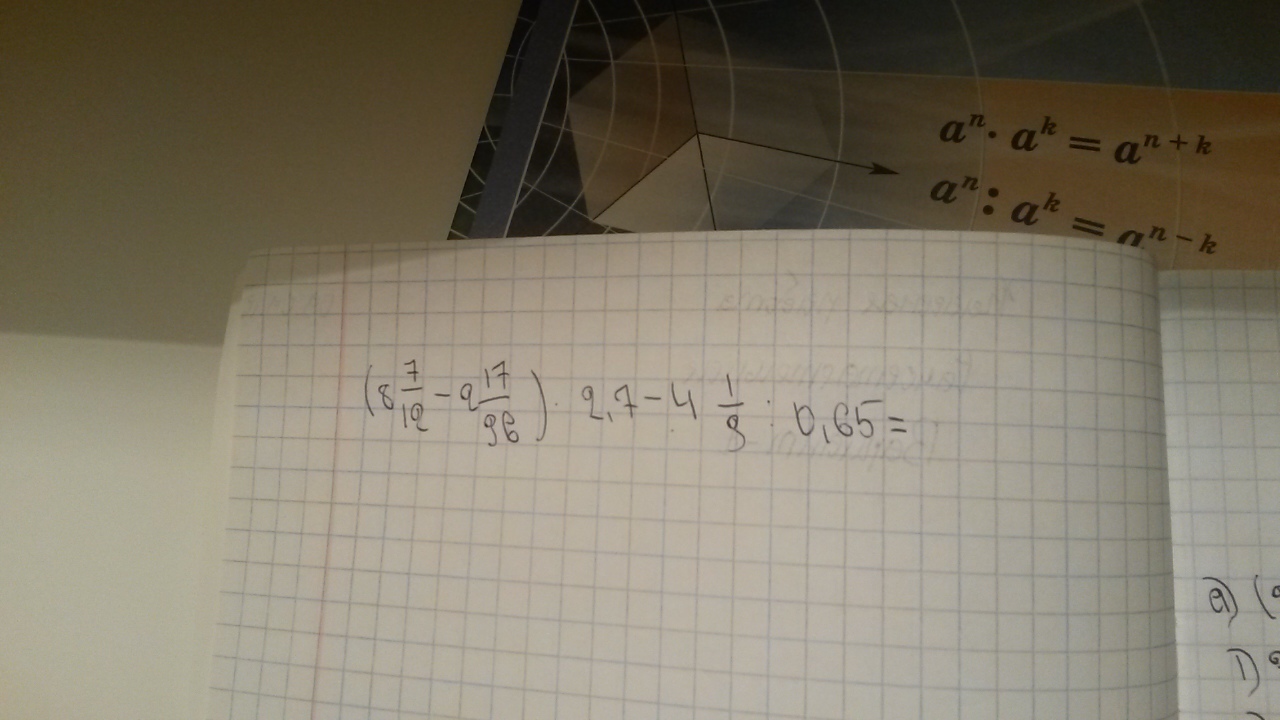 aⁿ · aᵏ = aⁿ⁺ᵏ
aⁿ : aᵏ = aⁿ⁻ᵏ
(8 7/12 − 2 17/36) · 2,7 − 4 1/3 : 0,65 =
а) (
1)